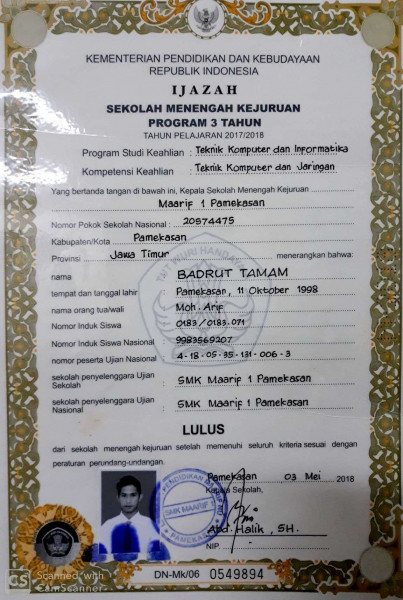 KEMENTERIAN PENDIDIKAN DAN KEBUDAYAAN
REPUBLIK INDONESIA
IJAZAH
SEKOLAH MENENGAH KEJURUAN
PROGRAM 3 TAHUN
TAHUN PELAJARAN 2017/2018
Program Studi Keahlian : Teknik Komputer dan Informatika
Kompetensi Keahlian : Teknik Komputer dan Jaringan
Yang bertanda tangan di bawah ini, Kepala Sekolah Menengah Kejuruan
Maarif 1 Pamekasan
Nomor Pokok Sekolah Nasional : 20574475
Kabupaten/Kota Pamekasan
Provinsi Jawa Timur menerangkan bahwa:
nama BADRUT TAMAM
tempat dan tanggal lahir Pamekasan, 11 Oktober 1998
nama orang tua/wali Moh. Arif
Nomor Induk Siswa 0183/0183.071
Nomor Induk Siswa Nasional 9983569207
nomor peserta Ujian Nasional 4-18-05-35-131-006-3
sekolah penyelenggara Ujian Sekolah SMK Maarif 1 Pamekasan
sekolah penyelenggara Ujian Nasional SMK Maarif 1 Pamekasan
LULUS
dari sekolah menengah kejuruan setelah memenuhi seluruh kriteria sesuai dengan
peraturan perundang-undangan.
Pamekasan 03 Mei 2018
Kepala Sekolah,
SMK MAARIF 1
PAMEKASAN
Abd. Halik, SH.
NIP.
DN-Mk/06 0549894
CS Scanned with
CamScanner